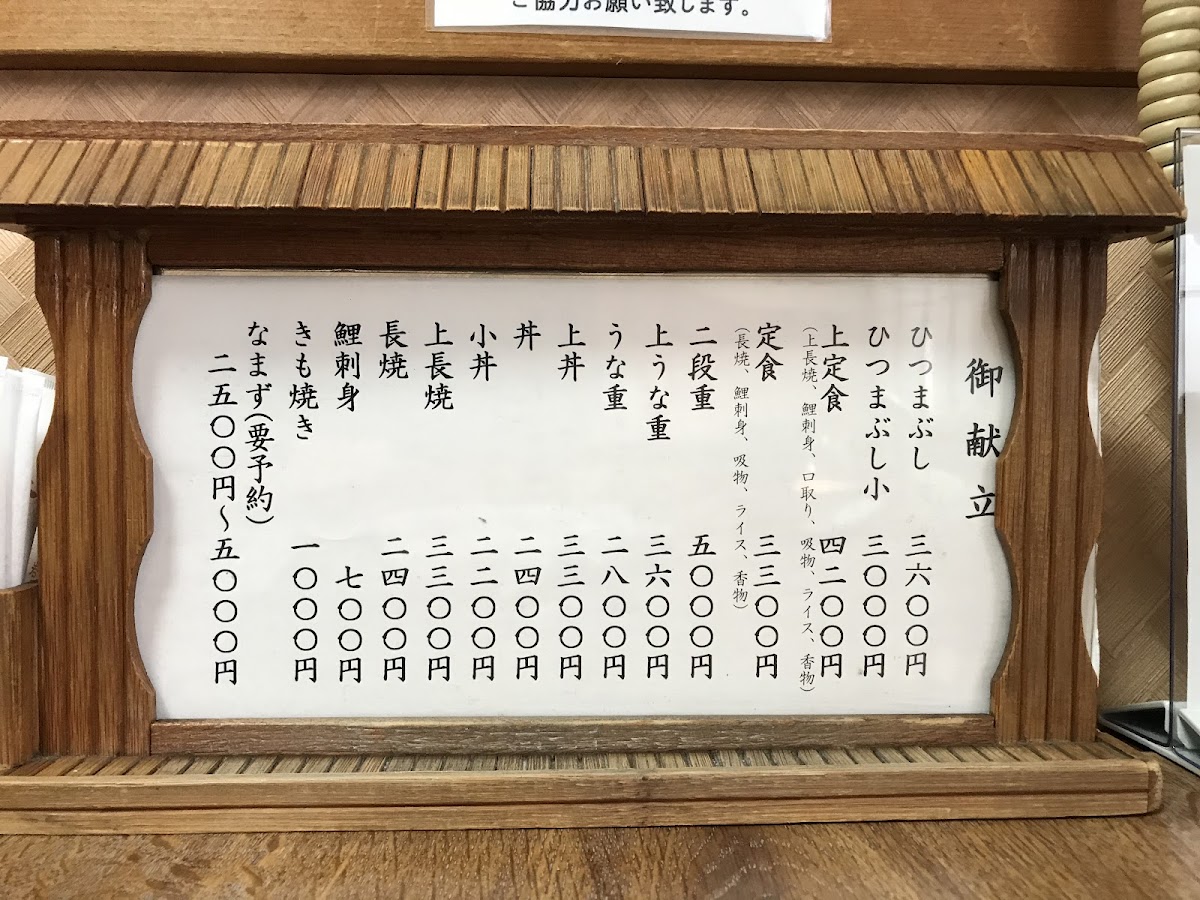 ご協力お願い致します。
御献立
ひつまぶし 三六〇〇円
ひつまぶし小 三〇〇〇円
上定食 四二〇〇円
(上長焼、鯉刺身、口取り、吸物、ライス、香物)
定食 三三〇〇円
(長焼、鯉刺身、吸物、ライス、香物)
二段重 五〇〇〇円
上うな重 三六〇〇円
うな重 二八〇〇円
上丼 三三〇〇円
丼 二四〇〇円
小丼 二二〇〇円
上長焼 三三〇〇円
長焼 二四〇〇円
鯉刺身 七〇〇円
きも焼き 一〇〇〇円
なまず(要予約)
二五〇〇円〜五〇〇〇円